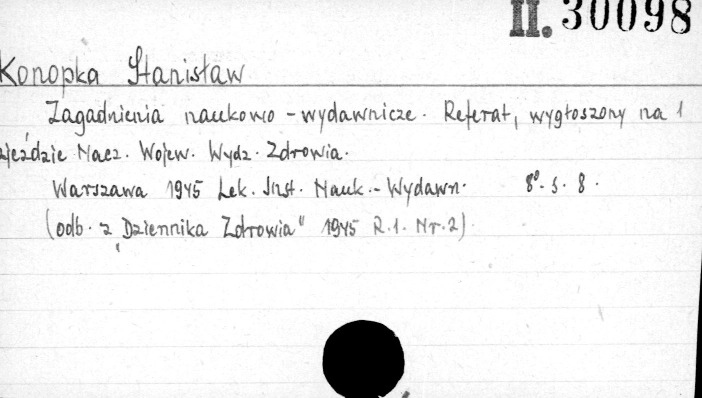 II. 30098
Konopka Stanisław
Zagadnienia naukowo-wydawnicze. Referat, wygłoszony na 1
zjeździe Nacz. Wojew. Wydz. Zdrowia.
Warszawa 1945 Lek. Inst. Nauk.-Wydawn. 8º. s. 8.
(odb. z „Dziennika Zdrowia" 1945 R.1. Nr.2)